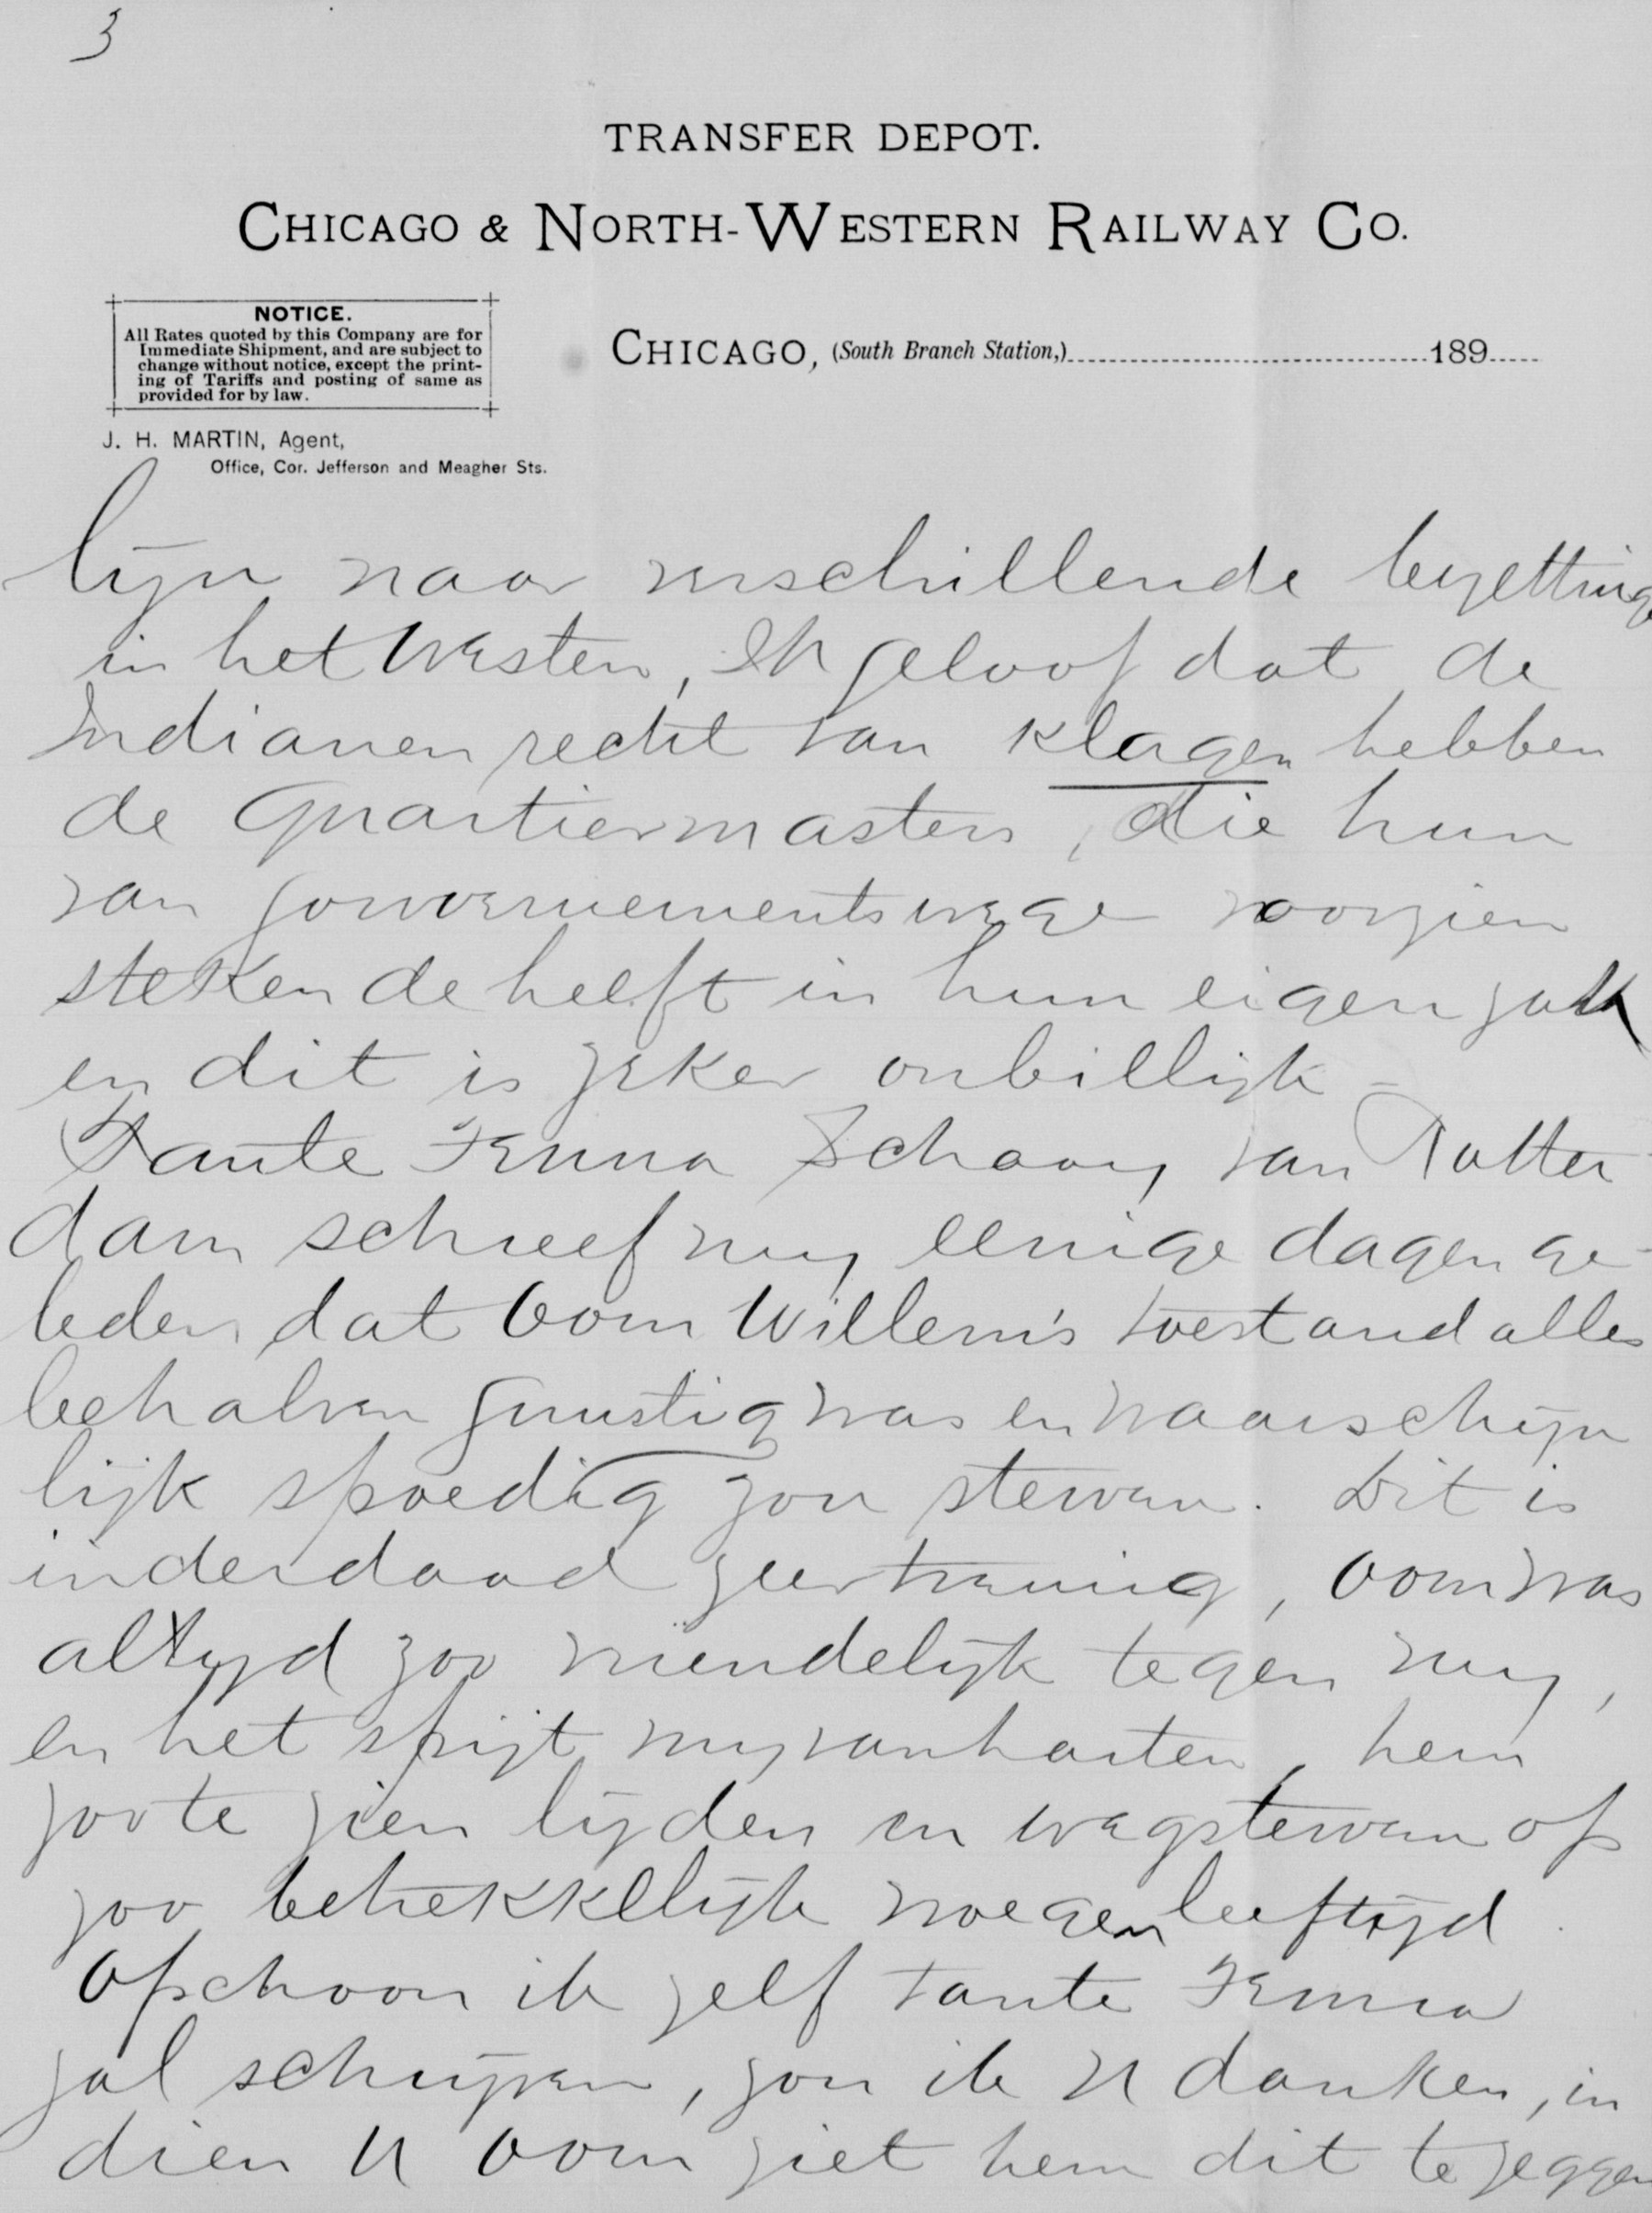 3
TRANSFER DEPOT.
CHICAGO & NORTH-WESTERN RAILWAY CO.
NOTICE.
All Rates quoted by this Company are for
Immediate Shipment, and are subject to
change without notice, except the print-
ing of Tariffs and posting of same as
provided for by law.
CHICAGO, (South Branch Station,) 189
J. H. MARTIN, Agent,
Office, Cor. Jefferson and Meagher Sts.
lijn naar verschillende bezetting
in het Westen, Ik geloof dat de
Indianen recht van klagen hebben
de Quartiermasters, die hun
van gouvernementswege voorzien
steken de helft in hun eigen zak
en dit is zeker onbillijk =
Tante Jenna Schaay van Rotter
dam schreef my eenige dagen ge-
leden dat Oom Willem's toestand alles
behalven gunstig was en waarschijn
lijk spoedig zou sterven. Dit is
inderdaad zeer treurig, oom was
altyd zoo vriendelijk tegen my,
en het spijt my van harten, hem
zoo te zien lijden en wegsterven op
zoo betrekkelijk vroegen leeftijd.
Ofschoon ik zelf tante Jenna
zal schrijven, zou ik U danken, in
dien U oom ziet hem dit te zeggen